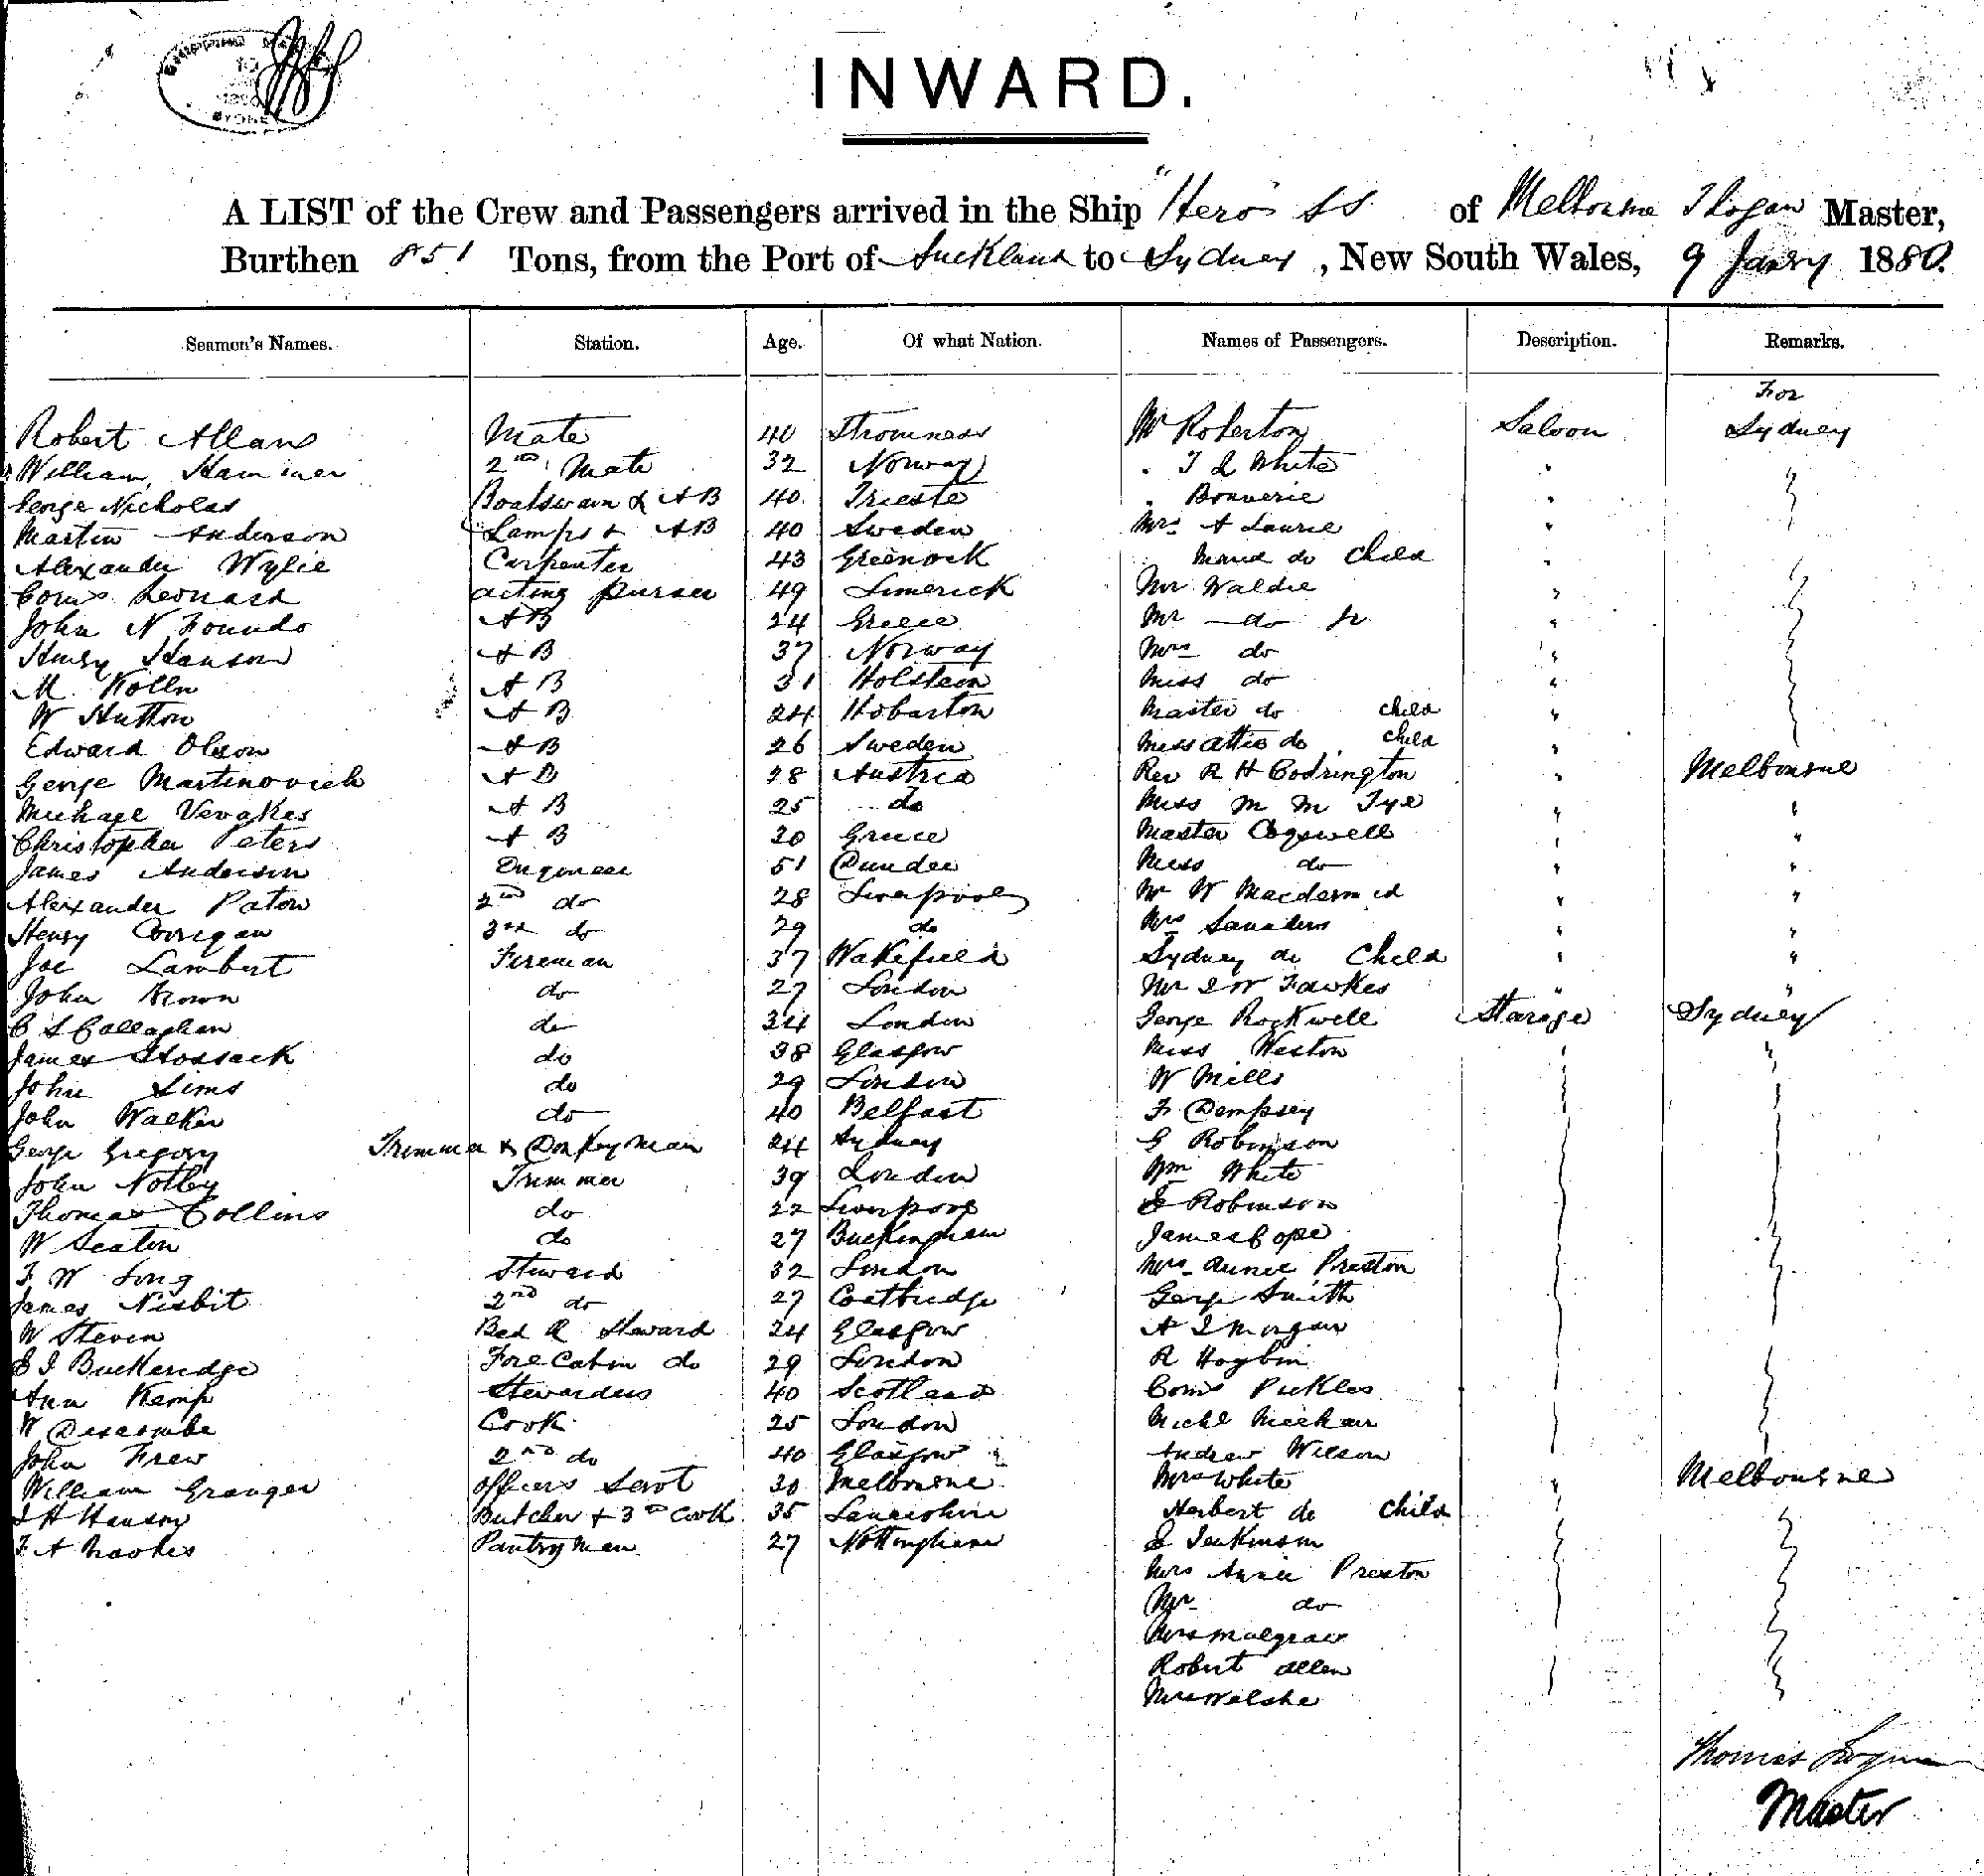 SHIPPING
10
1880
SYDNEY
INWARD.
A LIST of the Crew and Passengers arrived in the Ship "Hero" SS of Melbourne T Logan Master,
Burthen 851 Tons, from the Port of Auckland to Sydney, New South Wales, 9 Janry 1880.
Seamen's Names. Station. Age. Of what Nation. Names of Passengers. Description. Remarks.
For
Robert Allans Mate 40 Stromness Mr Roberton Saloon Sydney
William 2nd Mate 32 Norway " T White "
George Nicholas Boatswain & AB 40 Trieste " "
Martin Anderson Lamps & AB 40 Sweden Mrs A Laurie "
Alexander Wylie Carpenter 43 Greenock Maud do Child "
Corns Leonard acting purser 49 Limerick Mr Waldie "
John N Foundo AB 24 Greece Mr do Jr "
Henry Hanson AB 37 Norway Mrs do "
M. Kolln AB 31 Holstein Miss do "
W Hutton AB 24 Hobarton Master do child "
Edward Olsson AB 26 Sweden Miss Attie do child "
George Martinovich AB 28 Austria Rev R H Codrington " Melbourne
Michael AB 25 do Miss M M Tye " "
Christopher Peters AB 30 Greece Master Cogswell " "
James Anderson Engineer 51 Dundee Miss do " "
Alexander Paton 2nd do 28 Liverpool Mr W Macdermid " "
Henry Corrigan 3rd do 29 do Mrs Saunders " "
Joe Lambert Fireman 37 Wakefield Sydney do Child " "
John Brown do 27 London Mr Fawkes " "
C S Callaghan do 34 London George Rockwell Starage Sydney
James Hossack do 38 Glasgow Miss Weston
John Sims do 29 London W Mills
John Walker do 40 Belfast F Dempsey
George Gregory Trimmer & Donkeyman 24 Sydney G Robinson
John Notley Trimmer 39 London Wm White
Thomas Collins do 22 Liverpool E Robinson
W Seaton do 27 Buckingham James Cope
F W Long Steward 32 London Mrs Annie Preston
James Nisbit 2nd do 27 Coatbridge George Smith
W Steven Bed R Steward 24 Glasgow A Morgan
E J Buckeridge Fore Cabin do 29 London R Hoybin
Ann Kemp Stewardess 40 Scotland Corns Pickles
W Cook 25 London Michl Meehan
John Frew 2nd do 40 Glasgow Andrew Wilson
William Granger Officers Servt 30 Melbourne Mrs White " Melbourne
J H Hanson Butcher & 3rd Cook 35 Lancashire Herbert do Child
F A Pantryman 27 Nottingham E Jenkinson
Mrs Annie Preston
Mr do
Mrs Mulgraw
Robert Allen
Mrs Walshe
Thomas Logan
Master